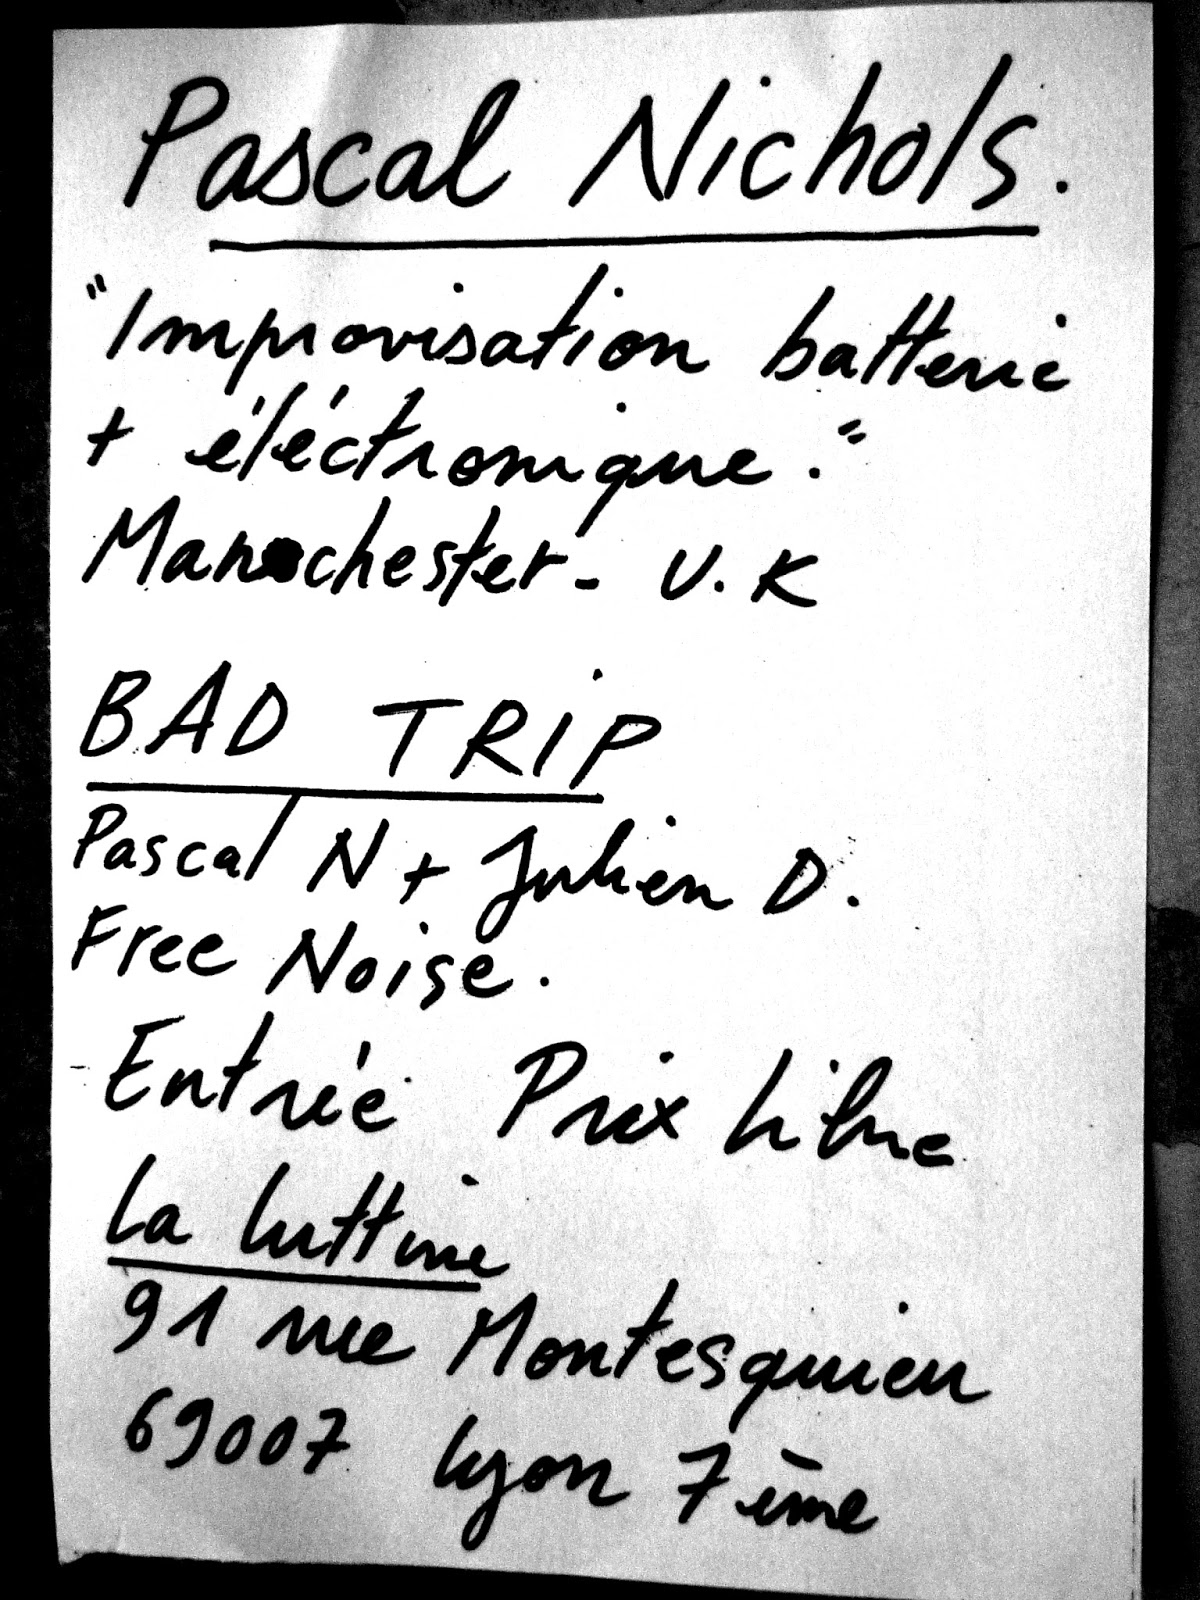 Pascal Nichols.
"Improvisation batterie
+ éléctronique."
Manchester - U.K
BAD TRIP
Pascal N + Julien D.
Free Noise.
Entrée Prix Libre
La Luttine
91 rue Montesquieu
69007 Lyon 7ème